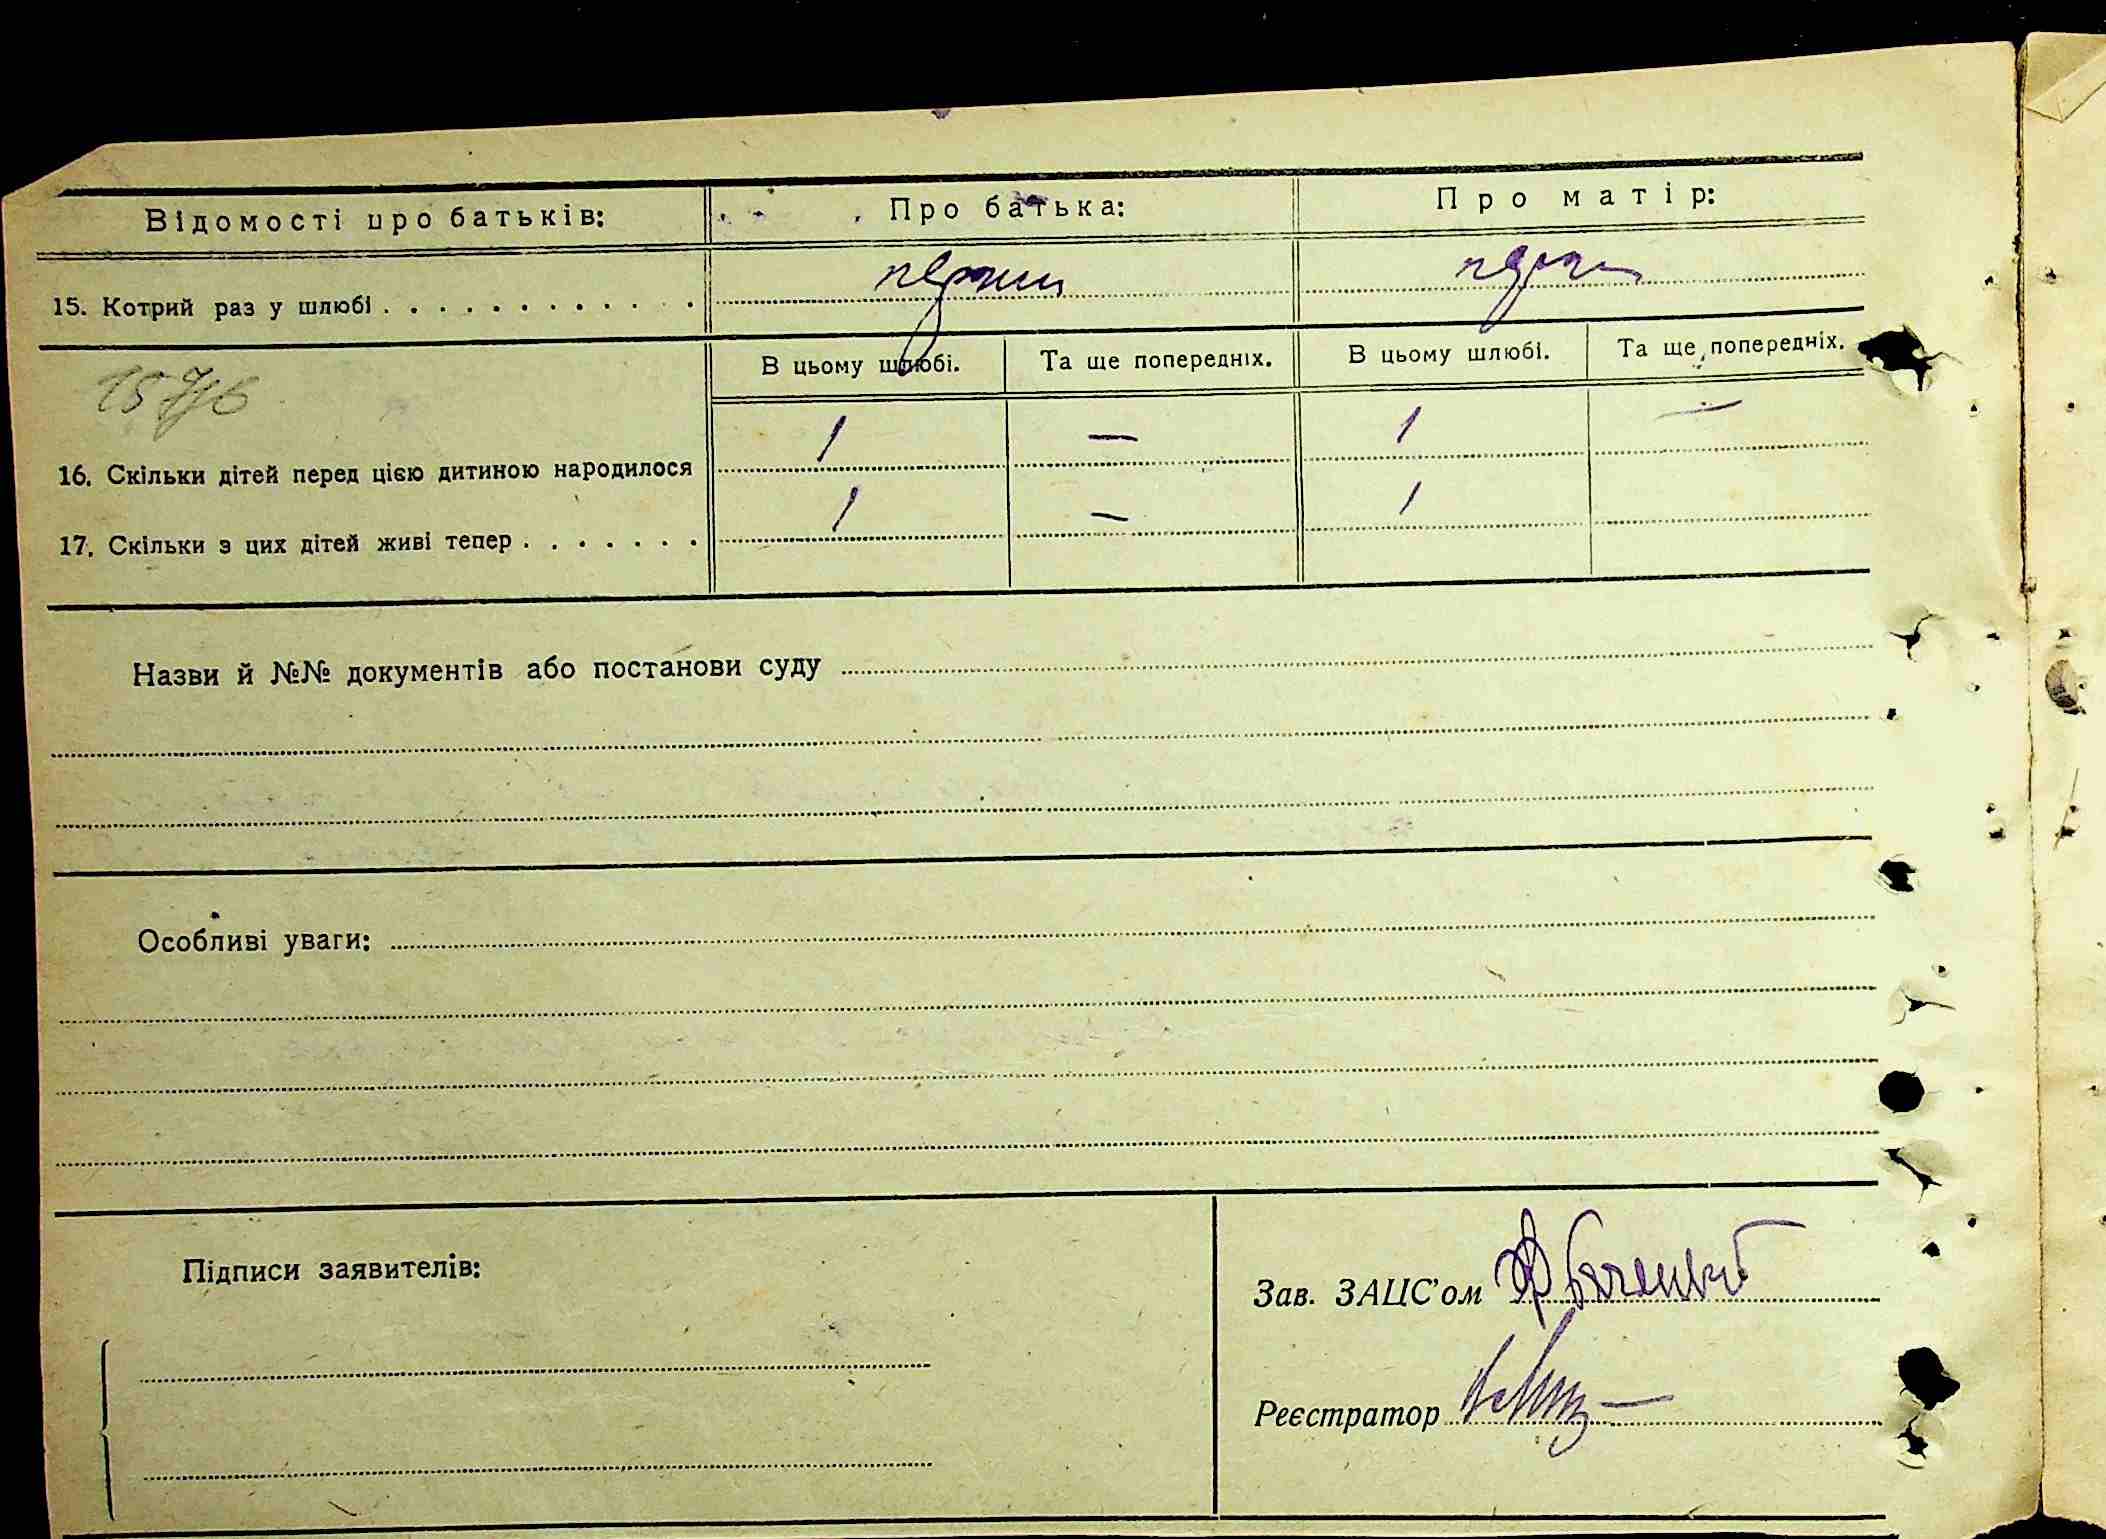 Відомості про батьків: Про батька: Про матір:
15. Котрий раз у шлюбі . . . . . . . . . . . . перший перший
В цьому шлюбі. Та ще попередніх. В цьому шлюбі. Та ще попередніх.
16. Скільки дітей перед цією дитиною народилося 1 — 1 —
17. Скільки з цих дітей живі тепер . . . . . . . 1 — 1
Назви й №№ документів або постанови суду
Особливі уваги:
Підписи заявителів:
Зав. ЗАЦС'ом
Реєстратор